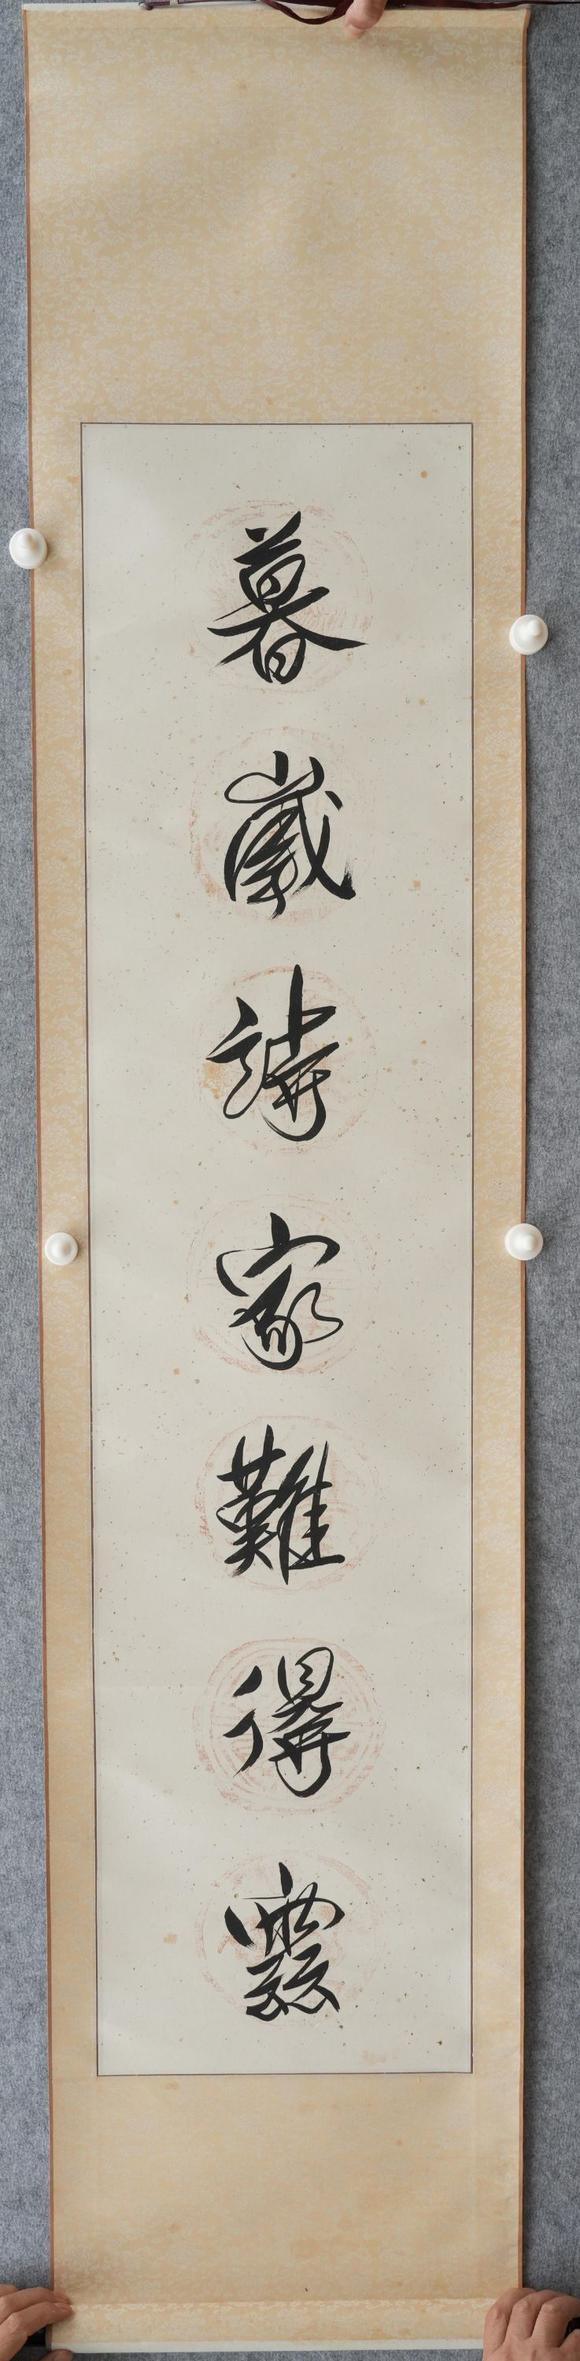 暮歲詩家難得